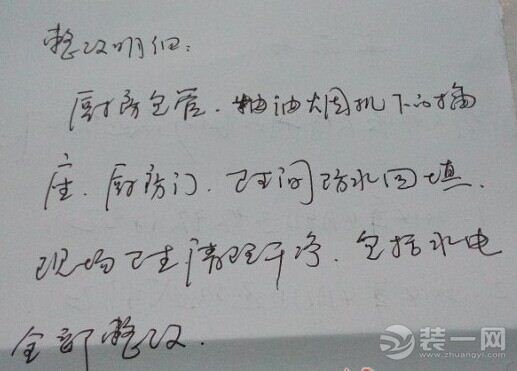 整改明细:
厨房包管、抽油烟机下的插
座、厨房门、卫生间防水回填、
现场卫生清理干净、包括水电
全部整改.
装一网
www.zhuangyi.com